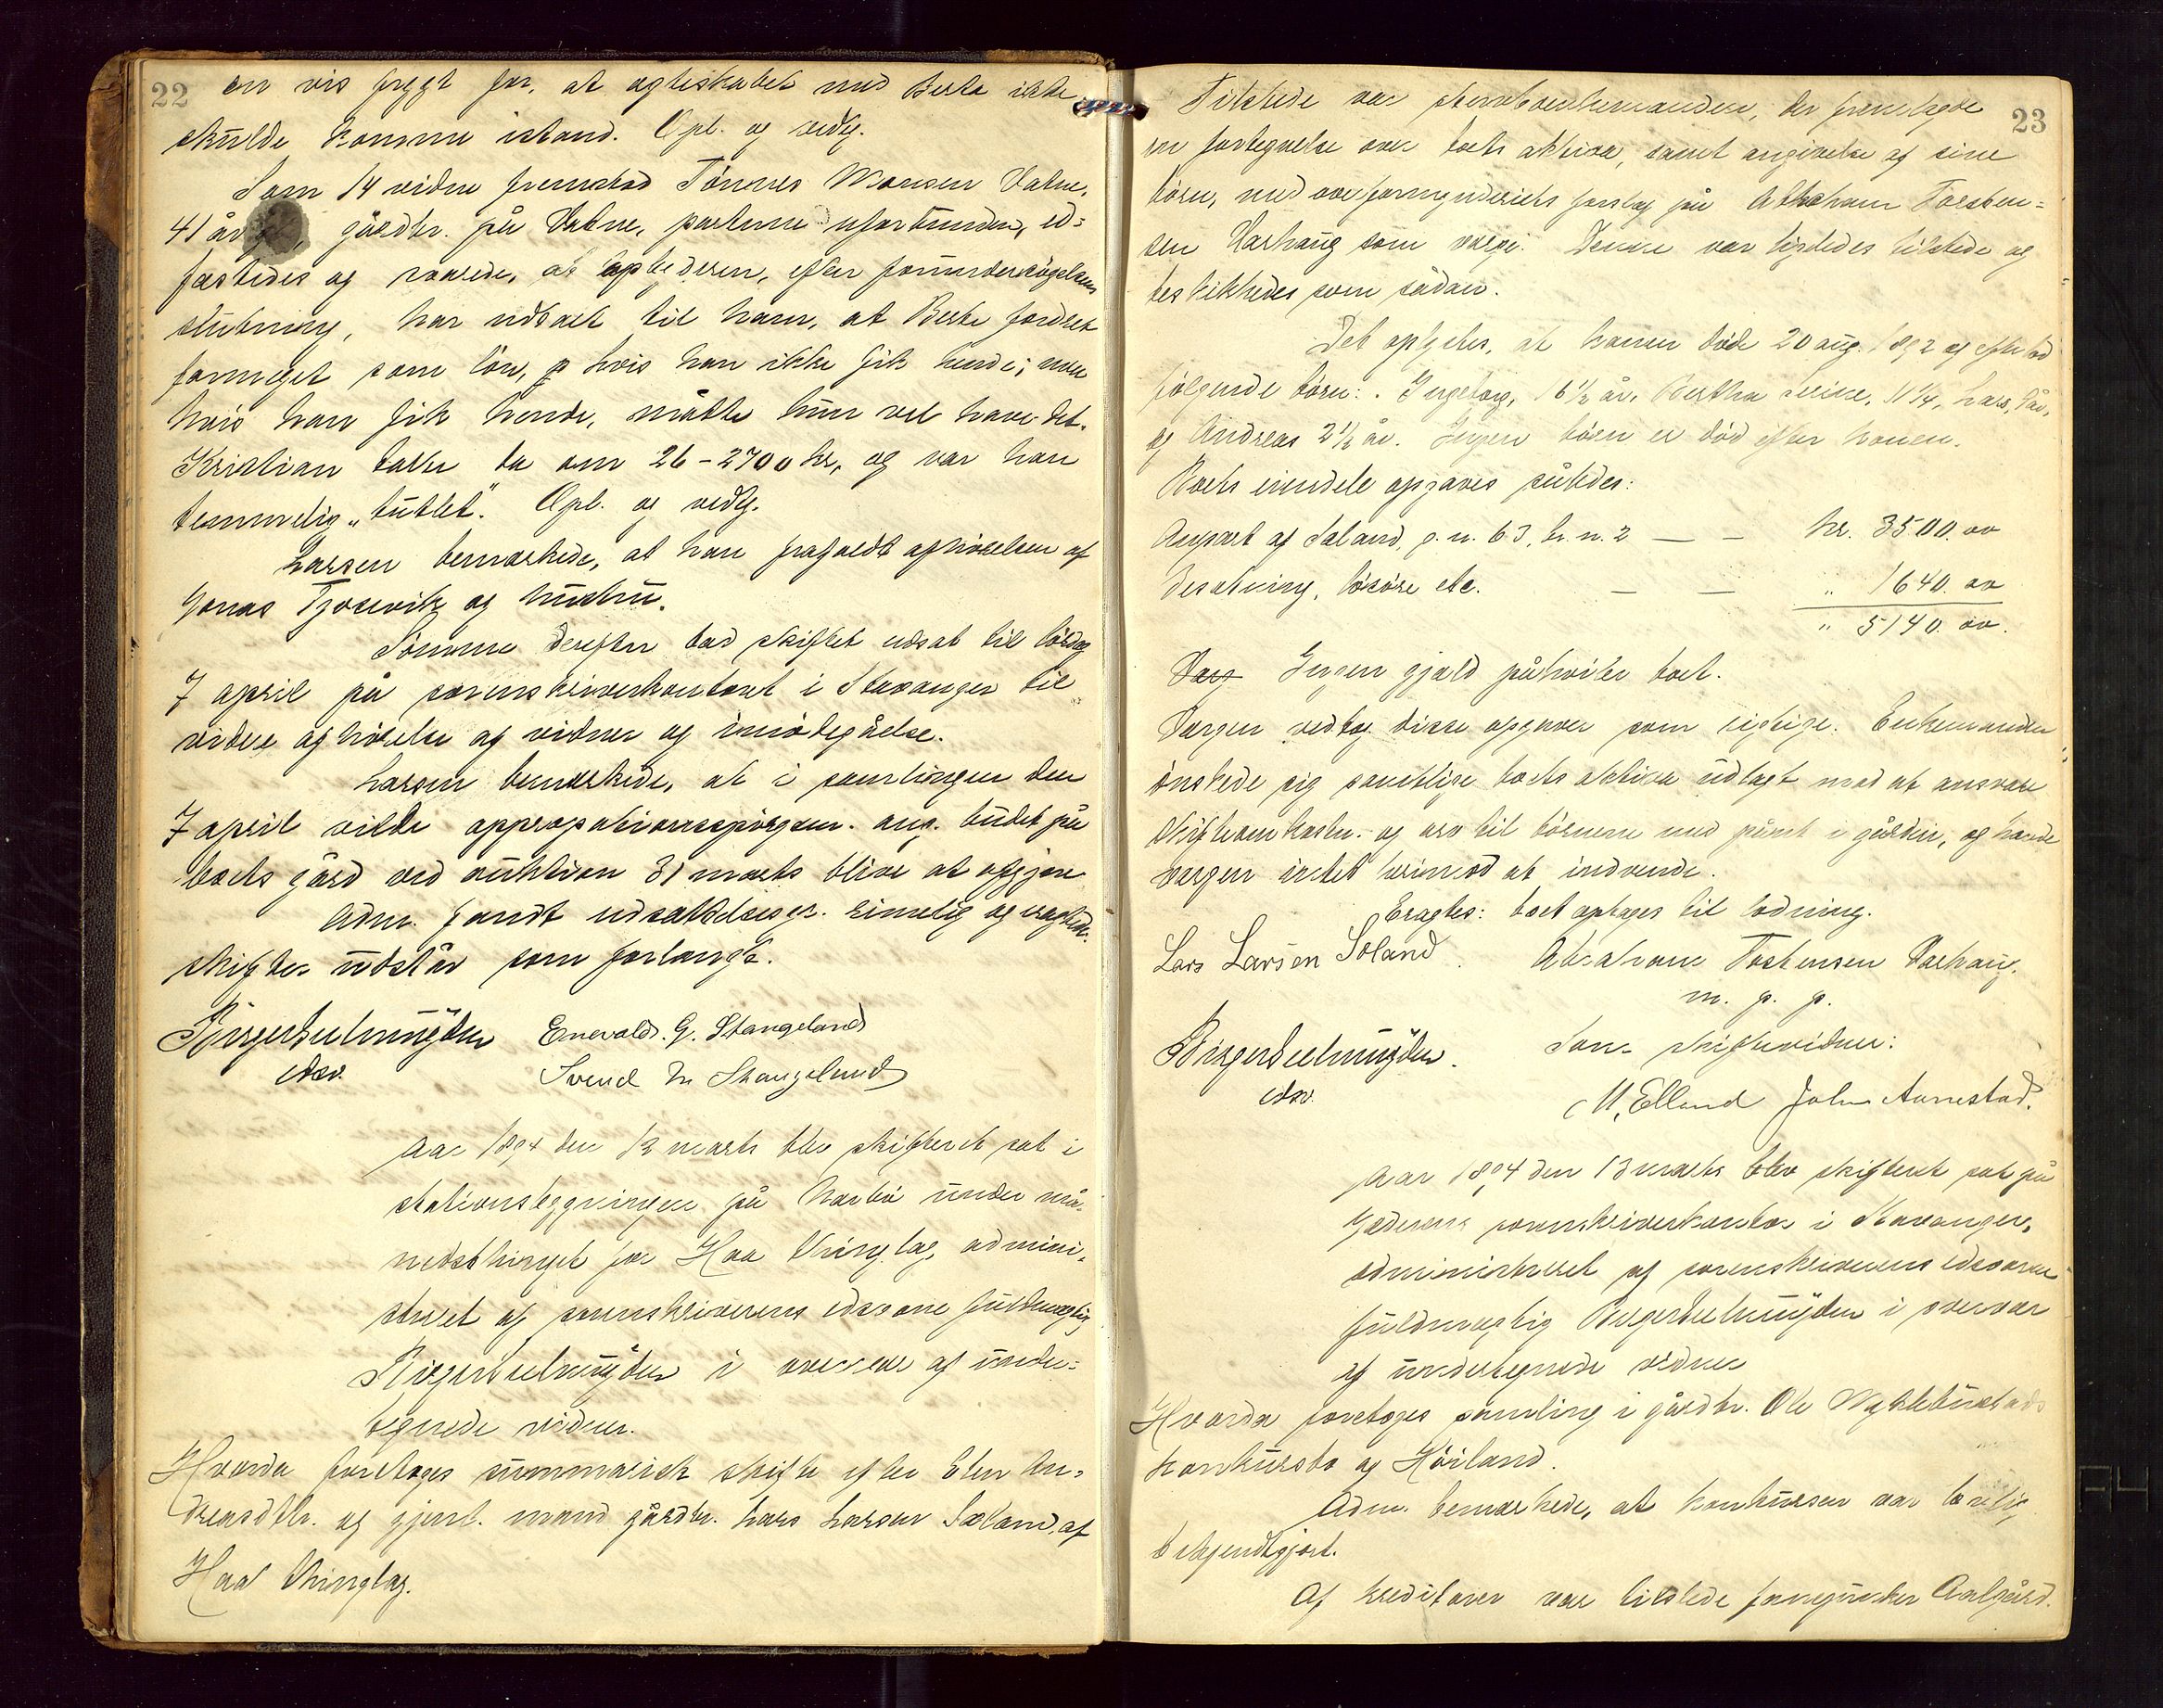 22
en vis frygt for, at ægteskabet med Berta ikke
skulde komme istand. Opl. og vedtg.
Som 14 vidne fremstod Tönnes Monsen Vatne,
41 år, gårdbr. på Vatne, parterne uforbunden, ed-
fæstedes og svarede, at opbyderen, efter forundersögelsens
slutning, har udtalt til ham, at Berte fordret
formeget som lön, hvis han ikke fik hende; men
hvis han fik hende, måtte hun vel have det.
Kristian talte da om 26-2700 kr, og var han
temmelig "tutlet". Opl. og vedtg.
Larsen bemærkede, at han frafaldt afhörelsen af
Jonas Tjosevik og hustru.
Sömme derefter bad skiftet udsat til lördag
7 april på sorenskriverkontoret i Stavanger til
videre afhörelse af vidner og imödegåelse.
Larsen bemærkede, at i samlingen den
7 april vilde approbationsspörgsm. ang. budet på
boets gård ved auktion 31 marts blive at afgjøre
Adm. fandt udsættelsesgr. rimelig og
skiftet udstår som forlangt.
Birger Selmuyden Enevald. G. Stangeland
edsv. Svend M Stangeland
Aar 1894 den 13 marts blev skifteret sat i
stationsbygningen på Narbö under må-
nedsthinget for Haa thinglag, admini-
streret af sorenskriverens edsvorne fuldmægtig
i overvær af under-
tegnede vidner.
Hvorda foretoges summarisk skifte efter Elen An-
dreasdtr. og gjenl. mand gårdbr. Lars Larsen Søland, af
Haa thinglag.
23
Tilstede var sterboenkemanden, der fremlagde
en fortegnelse over boets aktiva, samt angivelse af sine
börn, med overformynderiets forslag på Abraham Torsten-
sen Varhaug som verge. Denne var ligeledes tilstede og
beskikkedes som sådan.
Det oplystes, at konen döde 20 aug. 1892 og efterlod
fölgende börn: Ingeborg, 16 1/2 år, Bertha Serine, 11 1/4, Lars, år,
og Andreas 2 1/2 år. Ingen börn er död efter konen.
Boets eiendele opgaves således:
Anpart af Søland, g. n. 63, br. n. 2 — — kr. 3500. oo
Besætning, lösöre etc. — — " 1640. oo
" 5140. oo.
Ingen gjæld påhviler boet.
Vergen vedtog disse opgaver som rigtige. Enkemanden
önskede sig samtlige boets aktiva udlagt mod at ansvare
skifteomkostn. og arv til börnene med pant i gården, og havde
vergen intet herimod at indvende.
Eragtes: boet optages til lodning.
Lars Larsen Söland. Abraham Tostensen Varhaug.
m. p. p.
Birger Selmuyden. Som skiftevidner:
edsv. M. Elland John Aarrestad.
Aar 1894 den 13 marts blev skifteret sat på
Jæderens sorenskriverkontor i Stavanger,
administreret af sorenskriverens edsvorne
fuldmægtig Birger Selmuyden i overvær
af undertegnede vidner
Hvorda foretoges samling i gårdbr. Ole
konkursbo af Höiland.
Adm. bemærkede, at konkursen var lovlig
bekjendtgjort.
Af kreditorer var tilstede Aalgård.